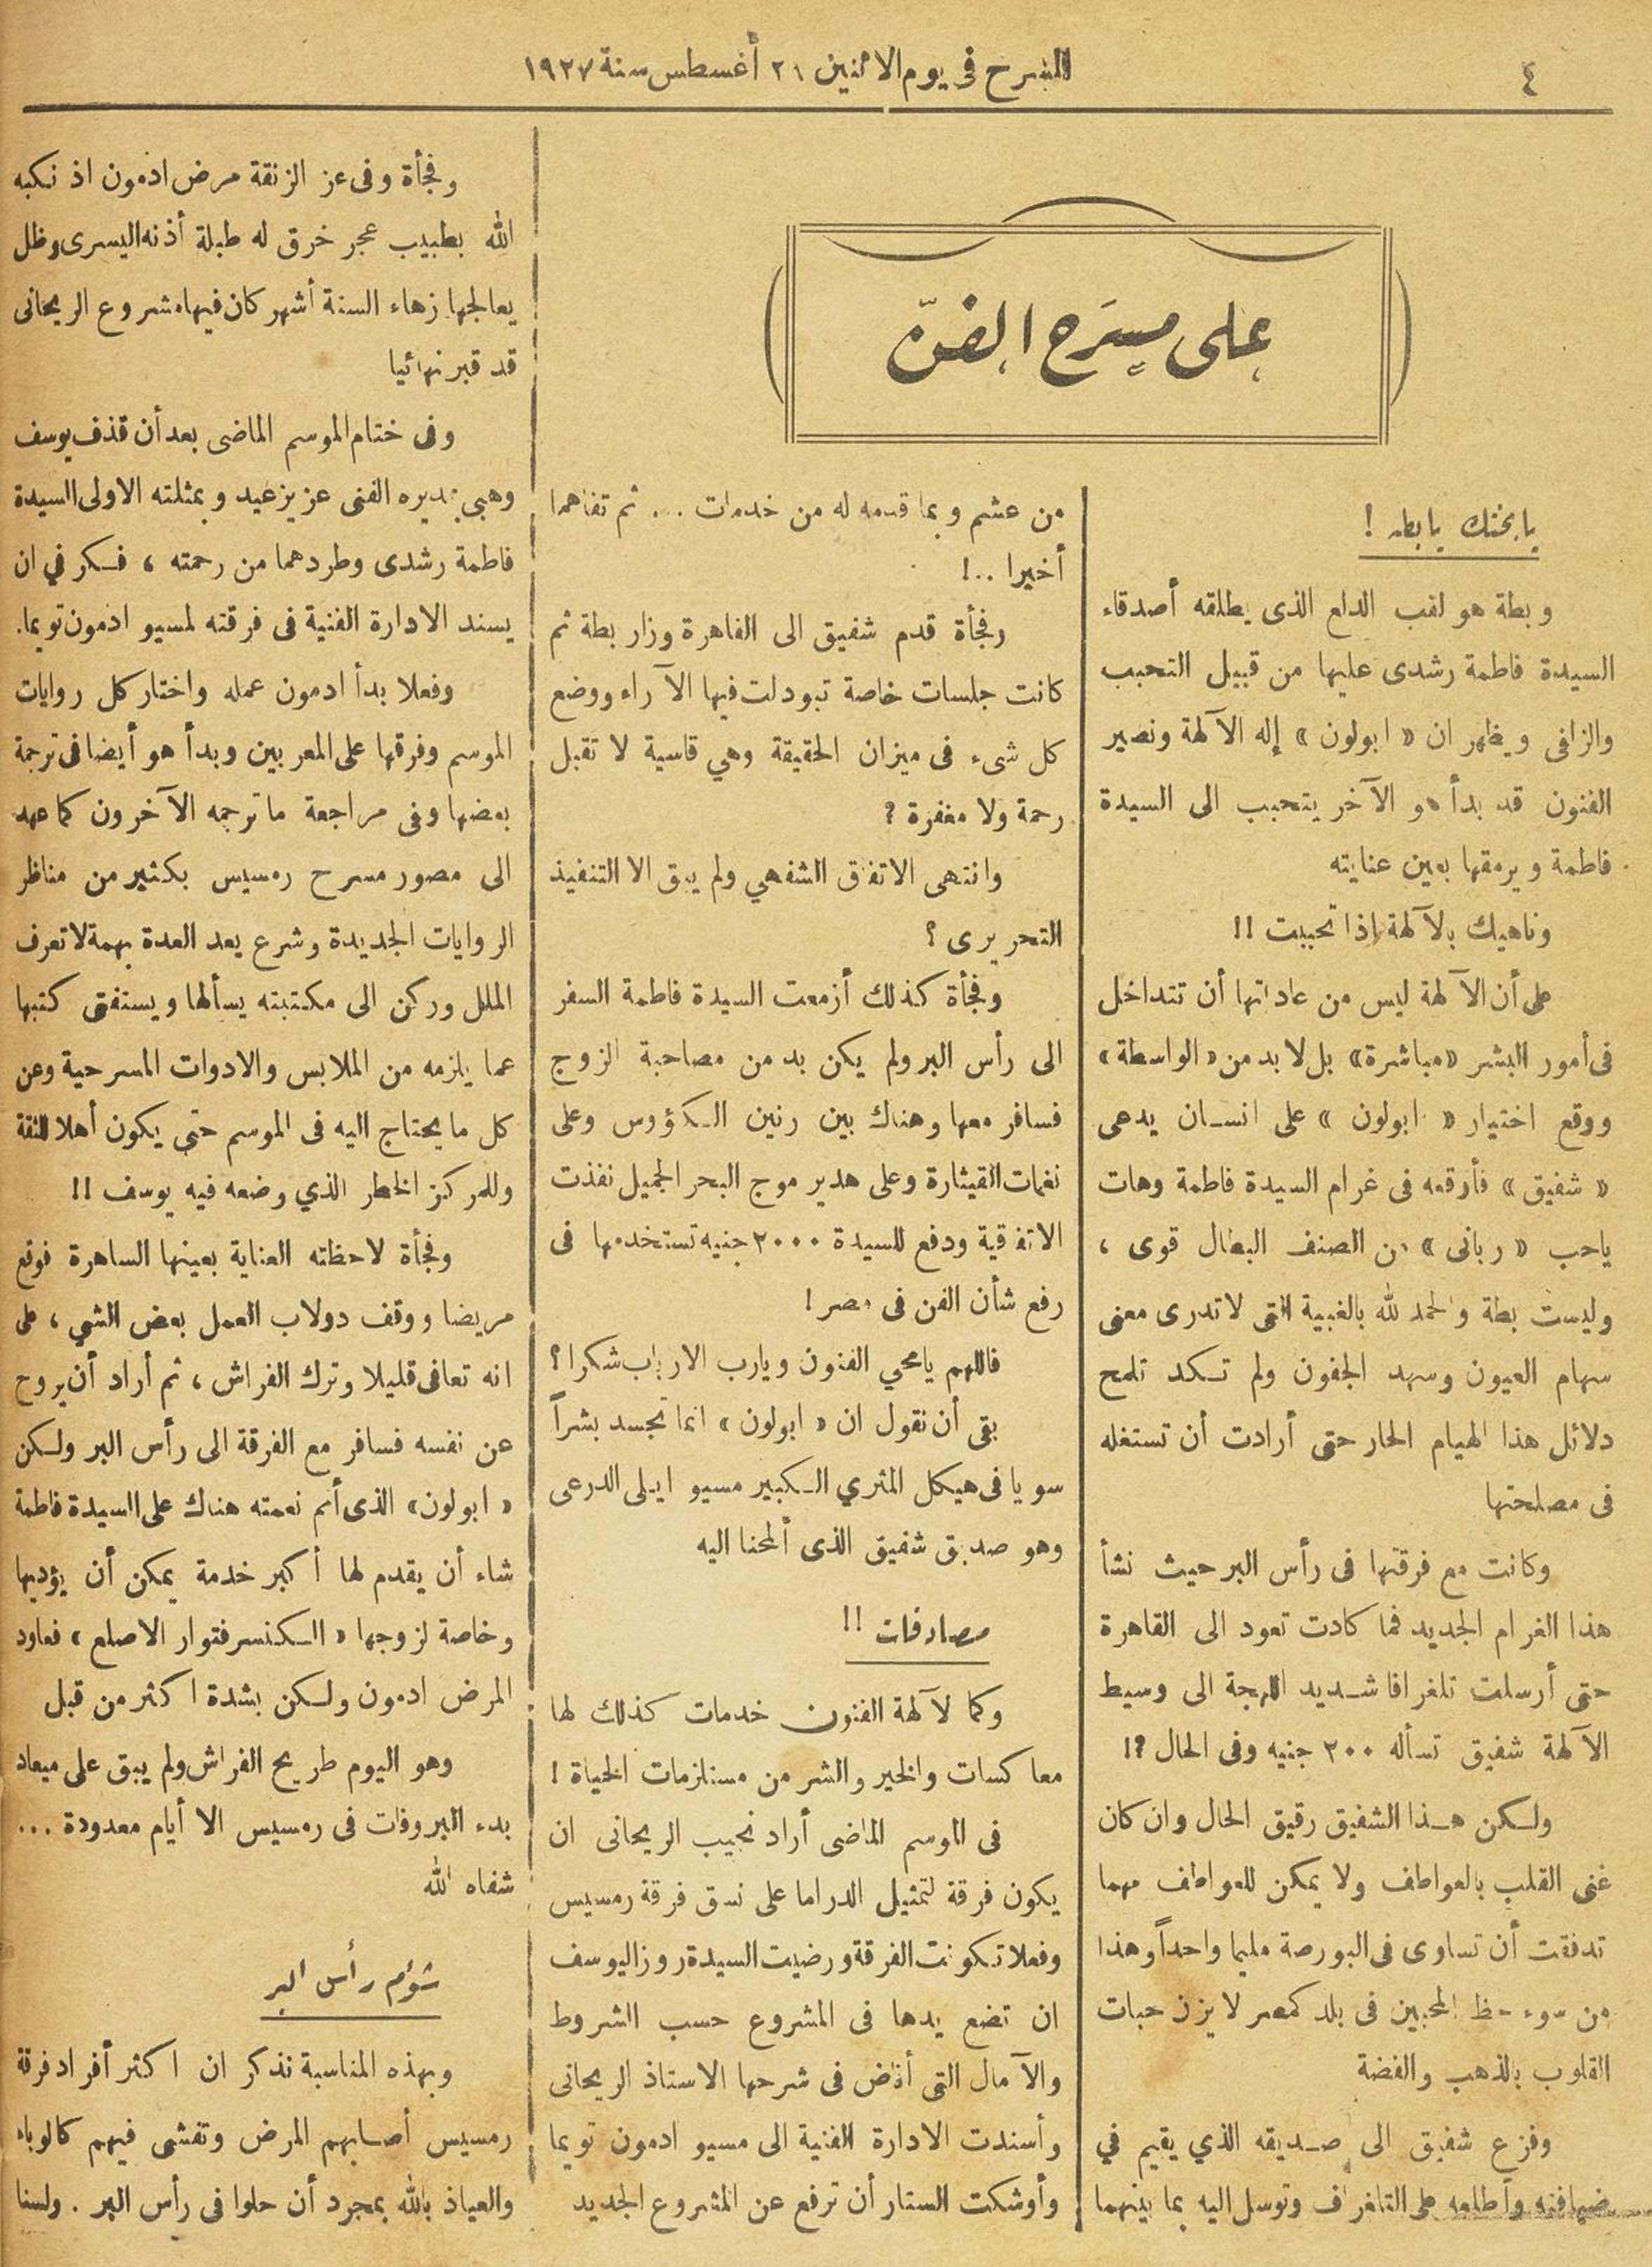 ٤
المسرح فى يوم الاثنين ٢١ أغسطس سنة ١٩٢٧
على مسرح الفن
يابختك يابطه !
وبطة هو لقب الدلع الذى يطلقه أصدقاء
السيدة فاطمة رشدى عليها من قبيل التحبب
والزلفى ويظهر ان « ابولون » إله الآلهة ونصير
الفنون قد بدأ هو الآخر يتحبب الى السيدة
فاطمة ويرمقها بعين عنايته
وناهيك بالآلهة إذا تحببت !!
على أن الآلهة ليس من عاداتها أن تتداخل
فى أمور البشر «مباشرة» بل لابد من «الواسطة»
ووقع اختيار « ابولون » على انسان يدعى
« شفيق » فأوقعه فى غرام السيدة فاطمة وهات
ياحب « ربانى » من الصنف البطال قوى ،
وليست بطة والحمد لله بالغبية التى لا تدرى معنى
سهام العيون وسهد الجفون ولم تكد تلمح
دلائل هذا الهيام الحار حتى أرادت أن تستغله
فى مصلحتها
وكانت مع فرقتها فى رأس البر حيث نشأ
هذا الغرام الجديد فما كادت تعود الى القاهرة
حتى أرسلت تلغرافا شديد اللهجة الى وسيط
الآلهة شفيق تسأله ٢٠٠ جنيه وفى الحال ؟!
ولكن هذا الشفيق رقيق الحال وان كان
غنى القلب بالعواطف ولا يمكن للعواطف مهما
تدفقت أن تساوى فى البورصة مليما واحداً وهذا
من سوء حظ المحبين فى بلد كمصر لا يزن حبات
القلوب بالذهب والفضة
وفزع شفيق الى صديقه الذي يقيم في
ضيافته وأطلعه على التلغراف وتوسل اليه بما بينهما
من عشم وبما قدمه له من خدمات ... ثم تفاهما
أخيرا ..!
وفجأة قدم شفيق الى القاهرة وزار بطة ثم
كانت جلسات خاصة تبودلت فيها الآراء ووضع
كل شىء فى ميزان الحقيقة وهي قاسية لا تقبل
رحمة ولا مغفرة ؟
وانتهى الاتفاق الشفهي ولم يبق الا التنفيذ
التحريرى ؟
وفجأة كذلك أزمعت السيدة فاطمة السفر
الى رأس البر ولم يكن بد من مصاحبة الزوج
فسافر معها وهناك بين رنين الكؤوس وعلى
نغمات القيثارة وعلى هدير موج البحر الجميل نفذت
الاتفاقية ودفع للسيدة ٢٠٠٠ جنيه تستخدمها فى
رفع شأن الفن فى مصر !
فاللهم يامحي الفنون ويارب الارباب شكرا ؟
بقى أن نقول ان « ابولون » انما تجسد بشراً
سويا فى هيكل المثري الكبير مسيو ايلى الدرعى
وهو صديق شفيق الذى ألمحنا اليه
مصادفات !!
وكما لآلهة الفنون خدمات كذلك لها
معاكسات والخير والشر من مستلزمات الحياة !
فى الموسم الماضى أراد نجيب الريحانى ان
يكون فرقة لتمثيل الدراما على نسق فرقة رمسيس
وفعلا تكونت الفرقة ورضيت السيدة روزاليوسف
ان تضع يدها فى المشروع حسب الشروط
والآمال التى أفاض فى شرحها الاستاذ الريحانى
وأسندت الادارة الفنية الى مسيو ادمون تويما
وأوشكت الستار أن ترفع عن المشروع الجديد
وفجأة وفى عز الزنقة مرض ادمون اذ نكبه
الله بطبيب عجر خرق له طبلة أذنه اليسرى وظل
يعالجها زهاء الستة أشهر كان فيها مشروع الريحانى
قد قبر نهائيا
وفى ختام الموسم الماضى بعد أن قذف يوسف
وهبى بمديره الفنى عزيز عيد وبمثلته الاولى السيدة
فاطمة رشدى وطردهما من رحمته ، فكر في ان
يسند الادارة الفنية فى فرقته لمسيو ادمون تويما.
وفعلا بدأ ادمون عمله واختار كل روايات
الموسم وفرقها على المعربين وبدأ هو أيضا فى ترجمة
بعضها وفى مراجعة ماترجمه الآخرون كما عهد
الى مصور مسرح رمسيس بكثير من مناظر
الروايات الجديدة وشرع يعد العدة بهمة لا تعرف
الملل وركن الى مكتبته يسألها ويستفتى كتبها
عما يلزمه من الملابس والادوات المسرحية وعن
كل ما يحتاج اليه فى الموسم حتى يكون أهلا للثقة
وللمركز الخطر الذي وضعه فيه يوسف !!
وفجأة لاحظته العناية بعينها الساهرة فوقع
مريضا ووقف دولاب العمل بعض الشي ، على
انه تعافى قليلا وترك الفراش ، ثم أراد أن يروح
عن نفسه فسافر مع الفرقة الى رأس البر ولكن
« ابولون» الذى أتم نعمته هناك على السيدة فاطمة
شاء أن يقدم لها أكبر خدمة يمكن أن يؤديها
وخاصة لزوجها « الكنسرفتوار الاصلع » فعاود
المرض ادمون ولكن بشدة اكثر من قبل
وهو اليوم طريح الفراش ولم يبق على ميعاد
بدء البروفات فى رمسيس الا أيام معدودة ...
شفاه الله
شؤم رأس البر
وبهذه المناسبة نذكر ان اكثر أفراد فرقة
رمسيس أصابهم المرض وتفشى فيهم كالوباء
والعياذ بالله بمجرد أن حلوا فى رأس البر . ولسنا